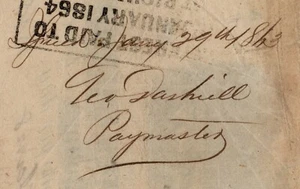 PAID TO
JANUARY 1864
Jany 29th 1863
Geo Dashiell
Paymaster